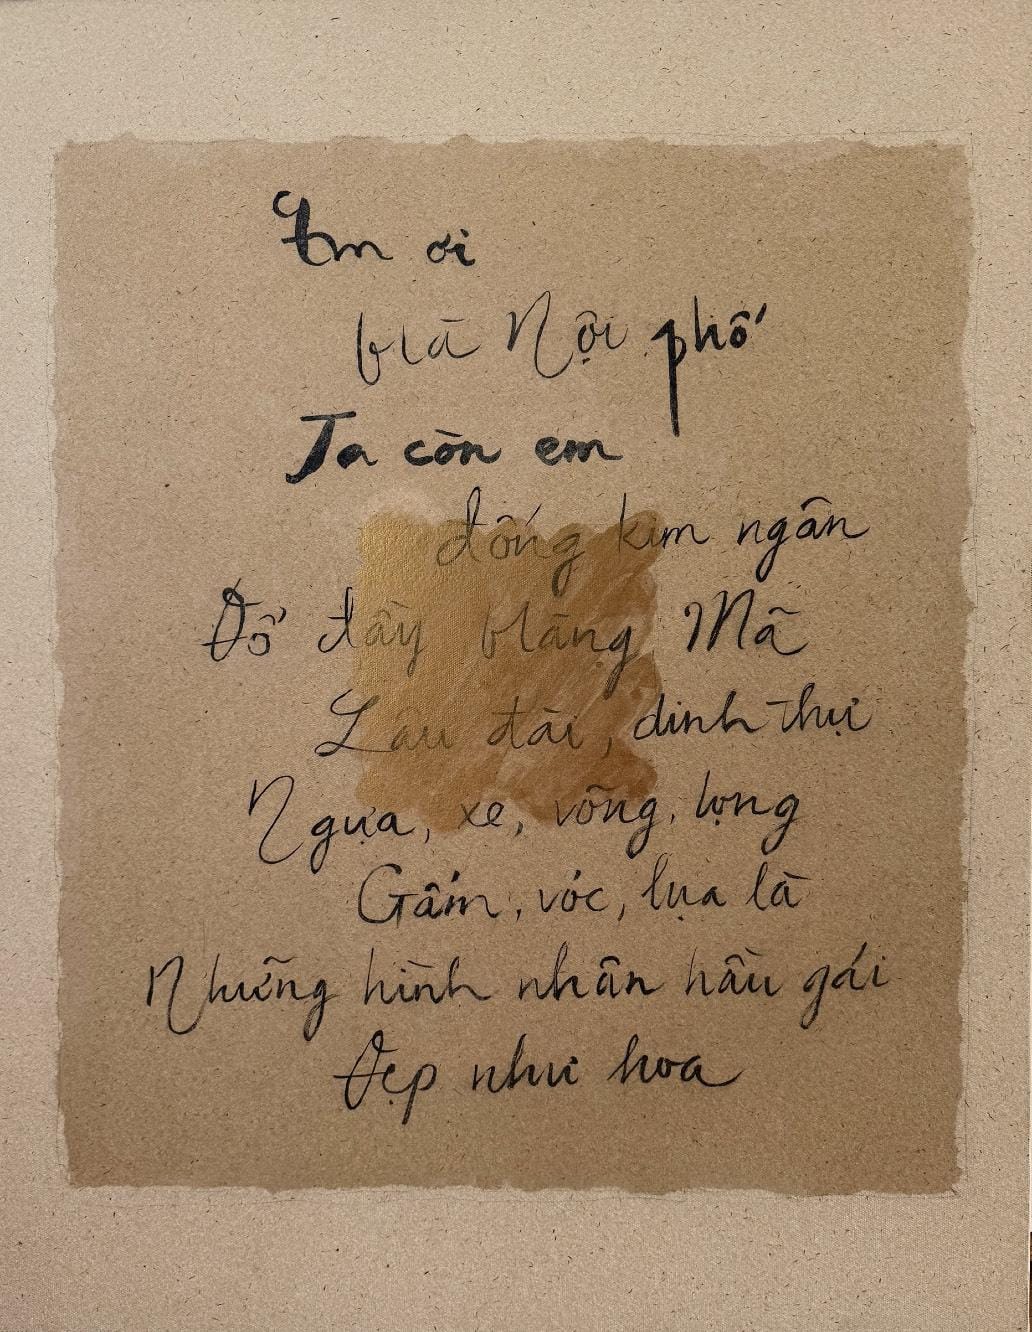 Em ơi
Hà Nội phố
Ta còn em
đống kim ngân
Đổ đầy Hàng Mã
Lâu đài, dinh thự
Ngựa, xe, võng, lọng
Gấm, vóc, lụa là
Những hình nhân hầu gái
Đẹp như hoa